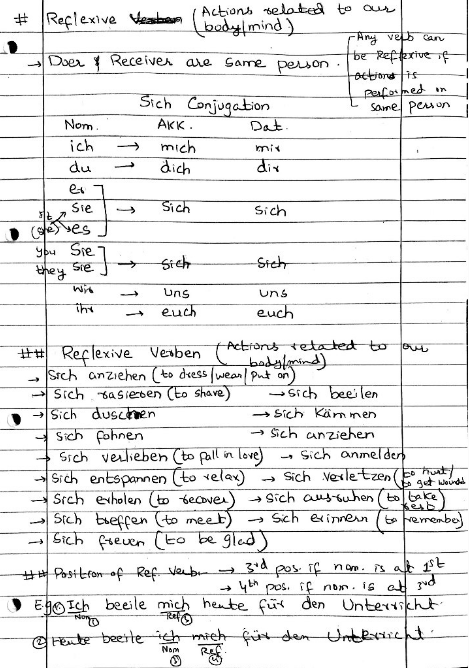 # Reflexive Verben (Actions related to our body/mind)
→ Doer & Receiver are same person.
Any verb can be Reflexive if actions is performed on same person
Sich Conjugation
Nom. AKK. Dat.
ich → mich mir
du → dich dir
er
Sie → Sich Sich
(she) es
you Sie
they Sie → Sich Sich
wir → uns uns
ihr → euch euch
## Reflexive Verben (Actions related to our body/mind)
→ Sich anziehen (to dress/wear/put on)
→ Sich rasieren (to shave) → sich beeilen
→ Sich duschen → sich Kämmen
→ Sich fohnen → sich anziehen
→ Sich verlieben (to fall in love) → Sich anmelden
→ Sich entspannen (to relax) → Sich verletzen (to hurt/to get wounds
→ Sich erholen (to recover) → Sich ausruhen (to take rest)
→ Sich treffen (to meet) → Sich erinnern (to remember)
→ Sich freuen (to be glad)
## Position of Ref. Verb. → 3rd pos. if nom. is at 1st
→ 4th pos. if nom. is at 3rd
Eg① Ich beeile mich heute für den Unterricht.
Nom① Ref③
② Heute beeile ich mich für den Unterricht.
Nom③ Ref④